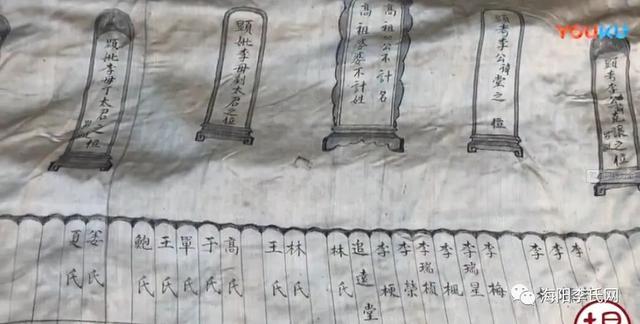 YOUKU
顯考李公
之位
顯考李公
堂之位
高祖公不計名
高祖婆婆不計姓
顯妣李母
太君之位
顯妣李母丁太君之位
李
李
李
李梅
李瑞星
李楓
李瑞楨
李榮
李梗
追遠堂
林氏
林氏
王氏
高氏
于氏
單氏
王氏
鮑氏
姜氏
夏氏
海阳李氏网